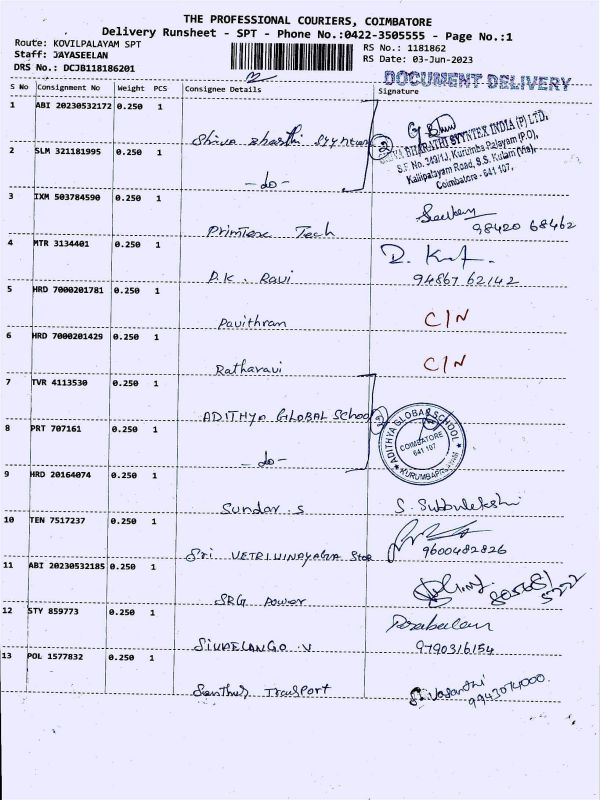 THE PROFESSIONAL COURIERS, COIMBATORE
Delivery Runsheet - SPT - Phone No.:0422-3505555 - Page No.:1
Route: KOVILPALAYAM SPT
RS No.: 1181862
Staff: JAYASEELAN
RS Date: 03-Jun-2023
DRS No.: DCJB1118186201
DOCUMENT DELIVERY
S No Consignment No Weight PCS Consignee Details Signature
1 ABI 20230532172 0.250 1
Shiva Bharthi Syyntex
SHIVA BHARATHI SYYNTEX INDIA (P) LTD.
S.F. No. 349/1J, Kurumba Palayam (P.O),
Kalipalayam Road, S.S. Kulam (Via),
Coimbatore - 641 107.
2 SLM 321181995 0.250 1
-do-
3 IXM 503784590 0.250 1
Primtex Tech
98420 68462
4 MTR 3134401 0.250 1
D.K. Ravi
94867 62142
5 HRD 7000201781 0.250 1
Pavithran C/N
6 HRD 7000201429 0.250 1
Ratharavi C/N
7 TVR 4113530 0.250 1
ADITHYA GLOBAL School
ADITHYA GLOBAL SCHOOL
COIMBATORE
641 107
KURUMBAPALAYAM
8 PRT 707161 0.250 1
-do-
9 HRD 20164074 0.250 1
Sundar. S S. Subbulekshi
10 TEN 7517237 0.250 1
Sri VETRIVINAYAGA Stor
9600482826
11 ABI 20230532185 0.250 1
SRG Power
12 STY 859773 0.250 1
SIVAELANGO V
9790316154
13 POL 1577832 0.250 1
Santhus Transport
Vasanthi
9943074000.